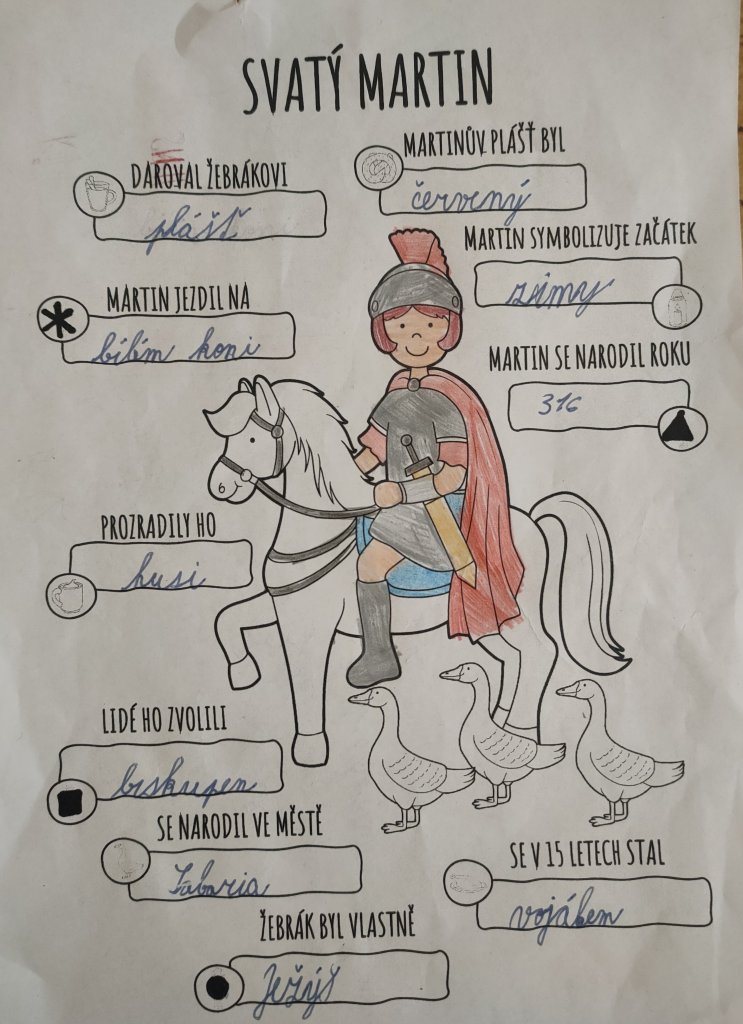 SVATÝ MARTIN
DAROVAL ŽEBRÁKOVI
plášť
MARTINŮV PLÁŠŤ BYL
červený
MARTIN SYMBOLIZUJE ZAČÁTEK
zimy
MARTIN JEZDIL NA
bílím koni
MARTIN SE NARODIL ROKU
316
PROZRADILY HO
husi
LIDÉ HO ZVOLILI
biskupen
SE NARODIL VE MĚSTĚ
Sabaria
SE V 15 LETECH STAL
vojákem
ŽEBRÁK BYL VLASTNĚ
Ježýš